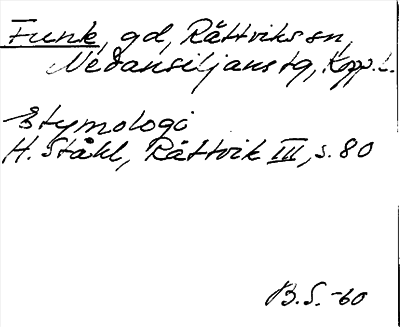 Funk, gd, Rättviks sn,
Nedansiljans tg, Kopp. l.
Etymologi
H. Ståhl, Rättvik III, s. 80
B.S. -60